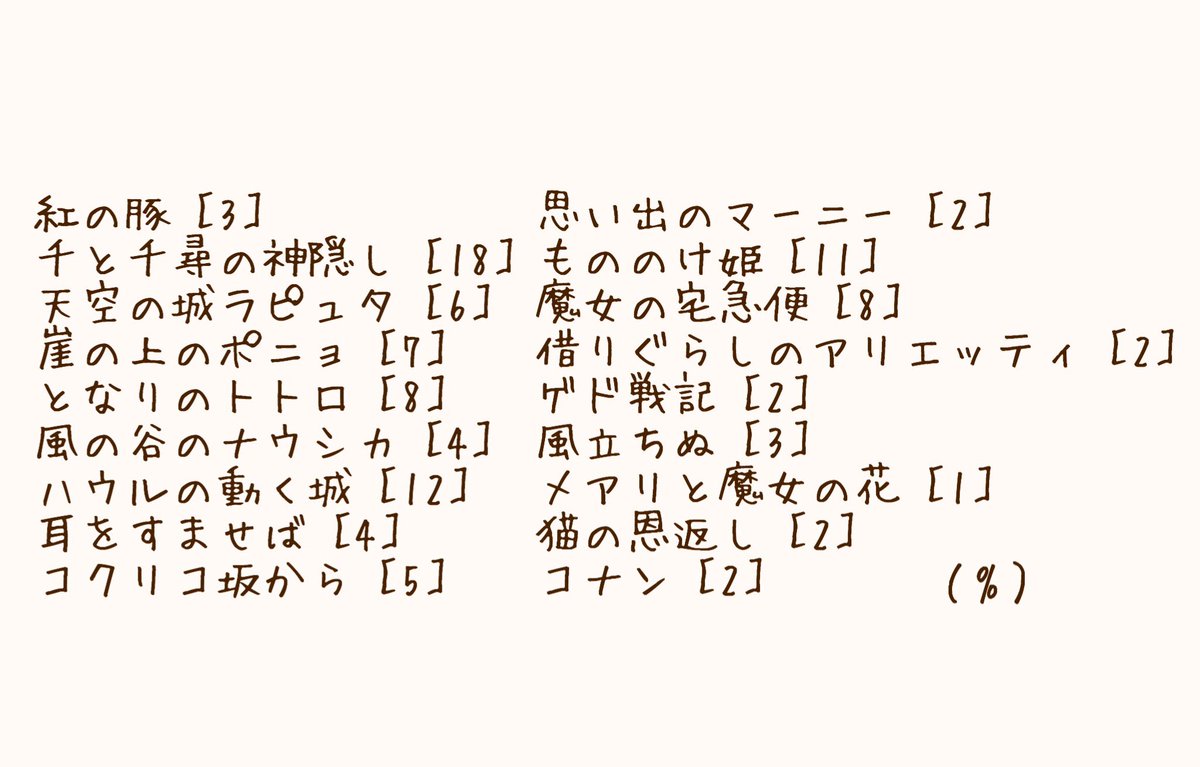 紅の豚 [3]
千と千尋の神隠し [18]
天空の城ラピュタ [6]
崖の上のポニョ [7]
となりのトトロ [8]
風の谷のナウシカ [4]
ハウルの動く城 [12]
耳をすませば [4]
コクリコ坂から [5]
思い出のマーニー [2]
もののけ姫 [11]
魔女の宅急便 [8]
借りぐらしのアリエッティ [2]
ゲド戦記 [2]
風立ちぬ [3]
メアリと魔女の花 [1]
猫の恩返し [2]
コナン [2]
(%)